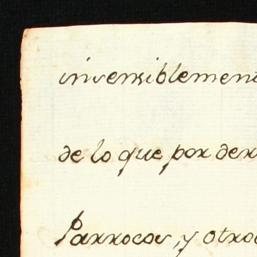 insensiblement
de lo que por der
Parrocos, y otros